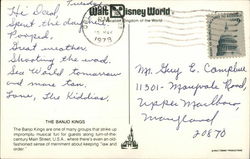 Tuesday
Hi Dear,
Spent the day here
Pooped.
Great weather.
Shooting the wad.
Sea World tomorrow
and more tan.
Love, The Kiddies.
THE BANJO KINGS
The Banjo Kings are one of many groups that strike up
impromptu musical fun for guests along turn-of-the-
century Main Street, U.S.A., where there's even an old-
fashioned sense of merriment about keeping "law and
order"
Walt Disney World
Vacation Kingdom of the World
1978
Mr. Guy E. Campbell
11501- Maryvale Road
Upper Marlboro,
Maryland
20870